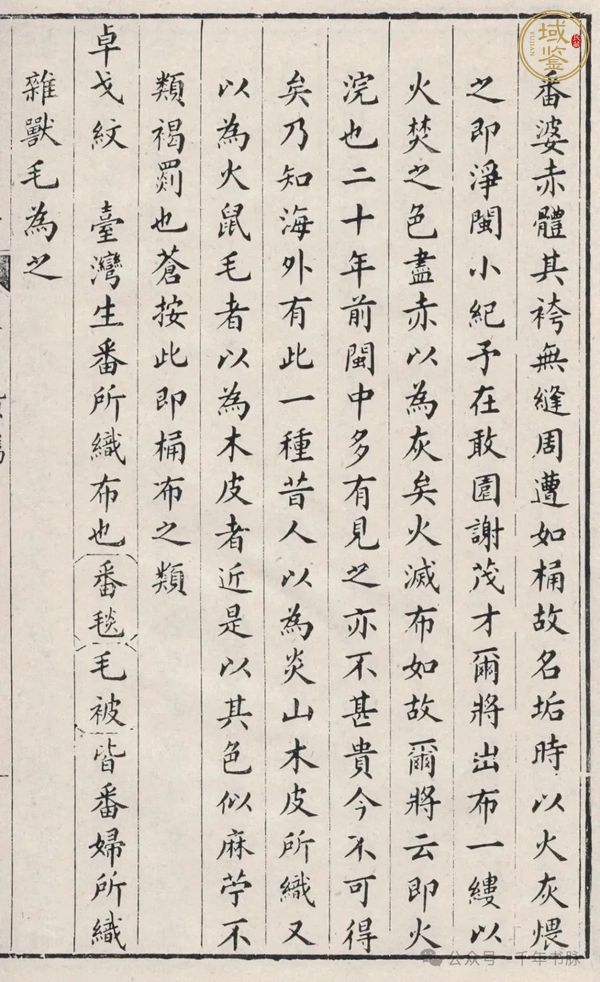 番婆赤體其袴無縫周遭如桶故名垢時以火灰煨
之即淨閩小紀予在敢園謝茂才爾將出布一縷以
火焚之色盡赤以為灰矣火滅布如故爾將云即火
浣也二十年前閩中多有見之亦不甚貴今不可得
矣乃知海外有此一種昔人以為炎山木皮所織又
以為火鼠毛者以為木皮者近是以其色似麻苧不
類褐罽也蒼按此即桶布之類
卓戈紋 臺灣生番所織布也番毯毛被皆番婦所織
雜獸毛為之
域鑒
YUJIAN
公众号·千年书脉